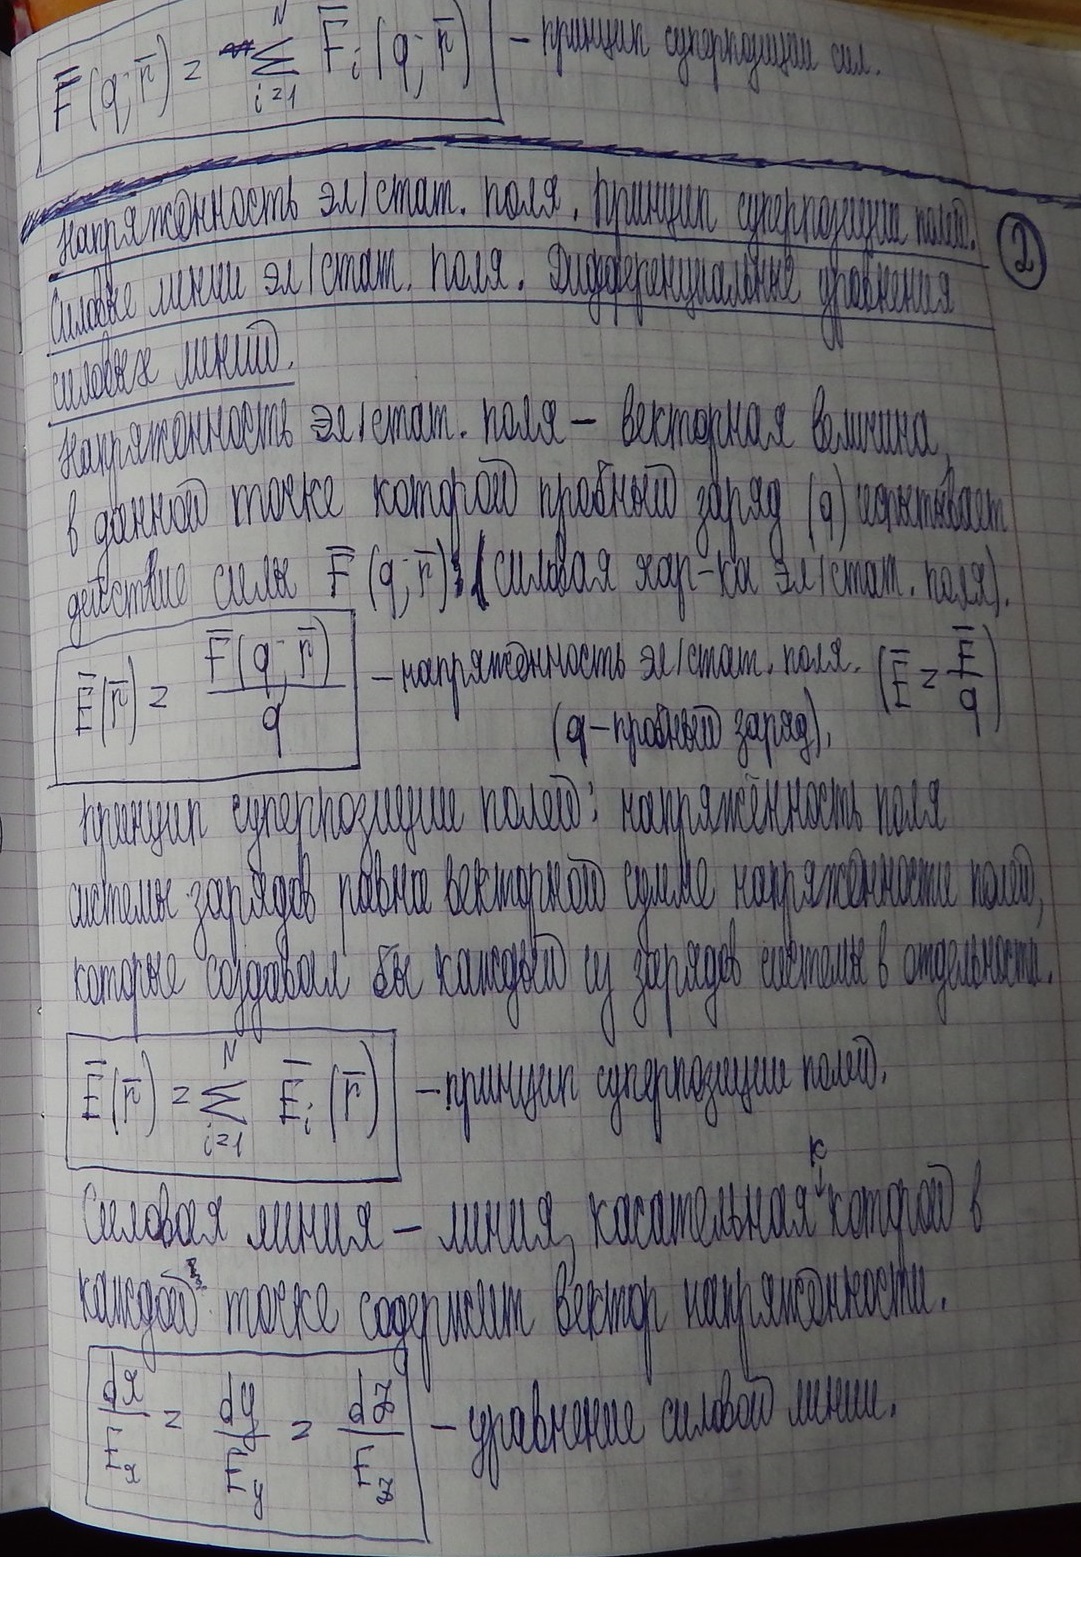 F̅(q; r̅) = Σ_{i=1}^{N} F̅_i(q; r̅) – принцип суперпозиции сил.
Напряжённость эл/стат. поля. Принцип суперпозиции полей. ②
Силовые линии эл/стат. поля. Дифференциальные уравнения
силовых линий.
Напряжённость эл/стат. поля – векторная величина,
в данной точке которой пробный заряд (q) испытывает
действие силы F̅(q; r̅) (силовая хар-ка эл/стат. поля).
E̅(r̅) = F̅(q; r̅)/q – напряжённость эл/стат. поля. (E̅ = F̅/q)
(q – пробный заряд).
Принцип суперпозиции полей: напряжённость поля
системы зарядов равна векторной сумме напряжённости полей,
которые создавал бы каждый из зарядов системы в отдельности.
E̅(r̅) = Σ_{i=1}^{N} E̅_i(r̅) – принцип суперпозиции полей.
к
Силовая линия – линия, касательная которой в
каждой точке содержит вектор напряжённости.
dx/E_x = dy/E_y = dz/E_z – уравнение силовой линии.